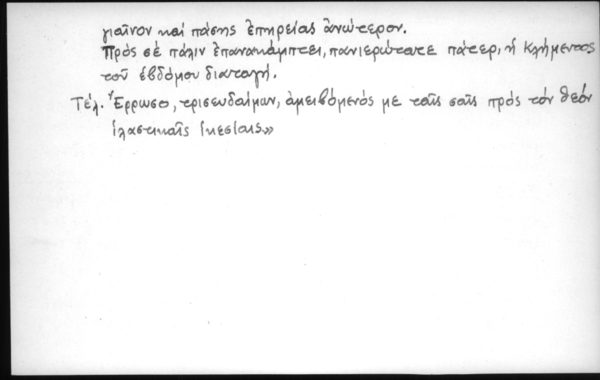 γιαῖνον καί πάσης ἐπηρείας ἀνώτερον.
Πρός σέ πάλιν ἐπανακάμπτει, πανιερώτατε πάτερ, ἡ Κλήμεντος
τοῦ ἑβδόμου διαταγή.
Τέλ. Ἔρρωσο, τρισευδαίμων, ἀμειβόμενός με ταῖς σαῖς πρός τόν θεόν
ἱλαστικαῖς ἱκεσίαις»